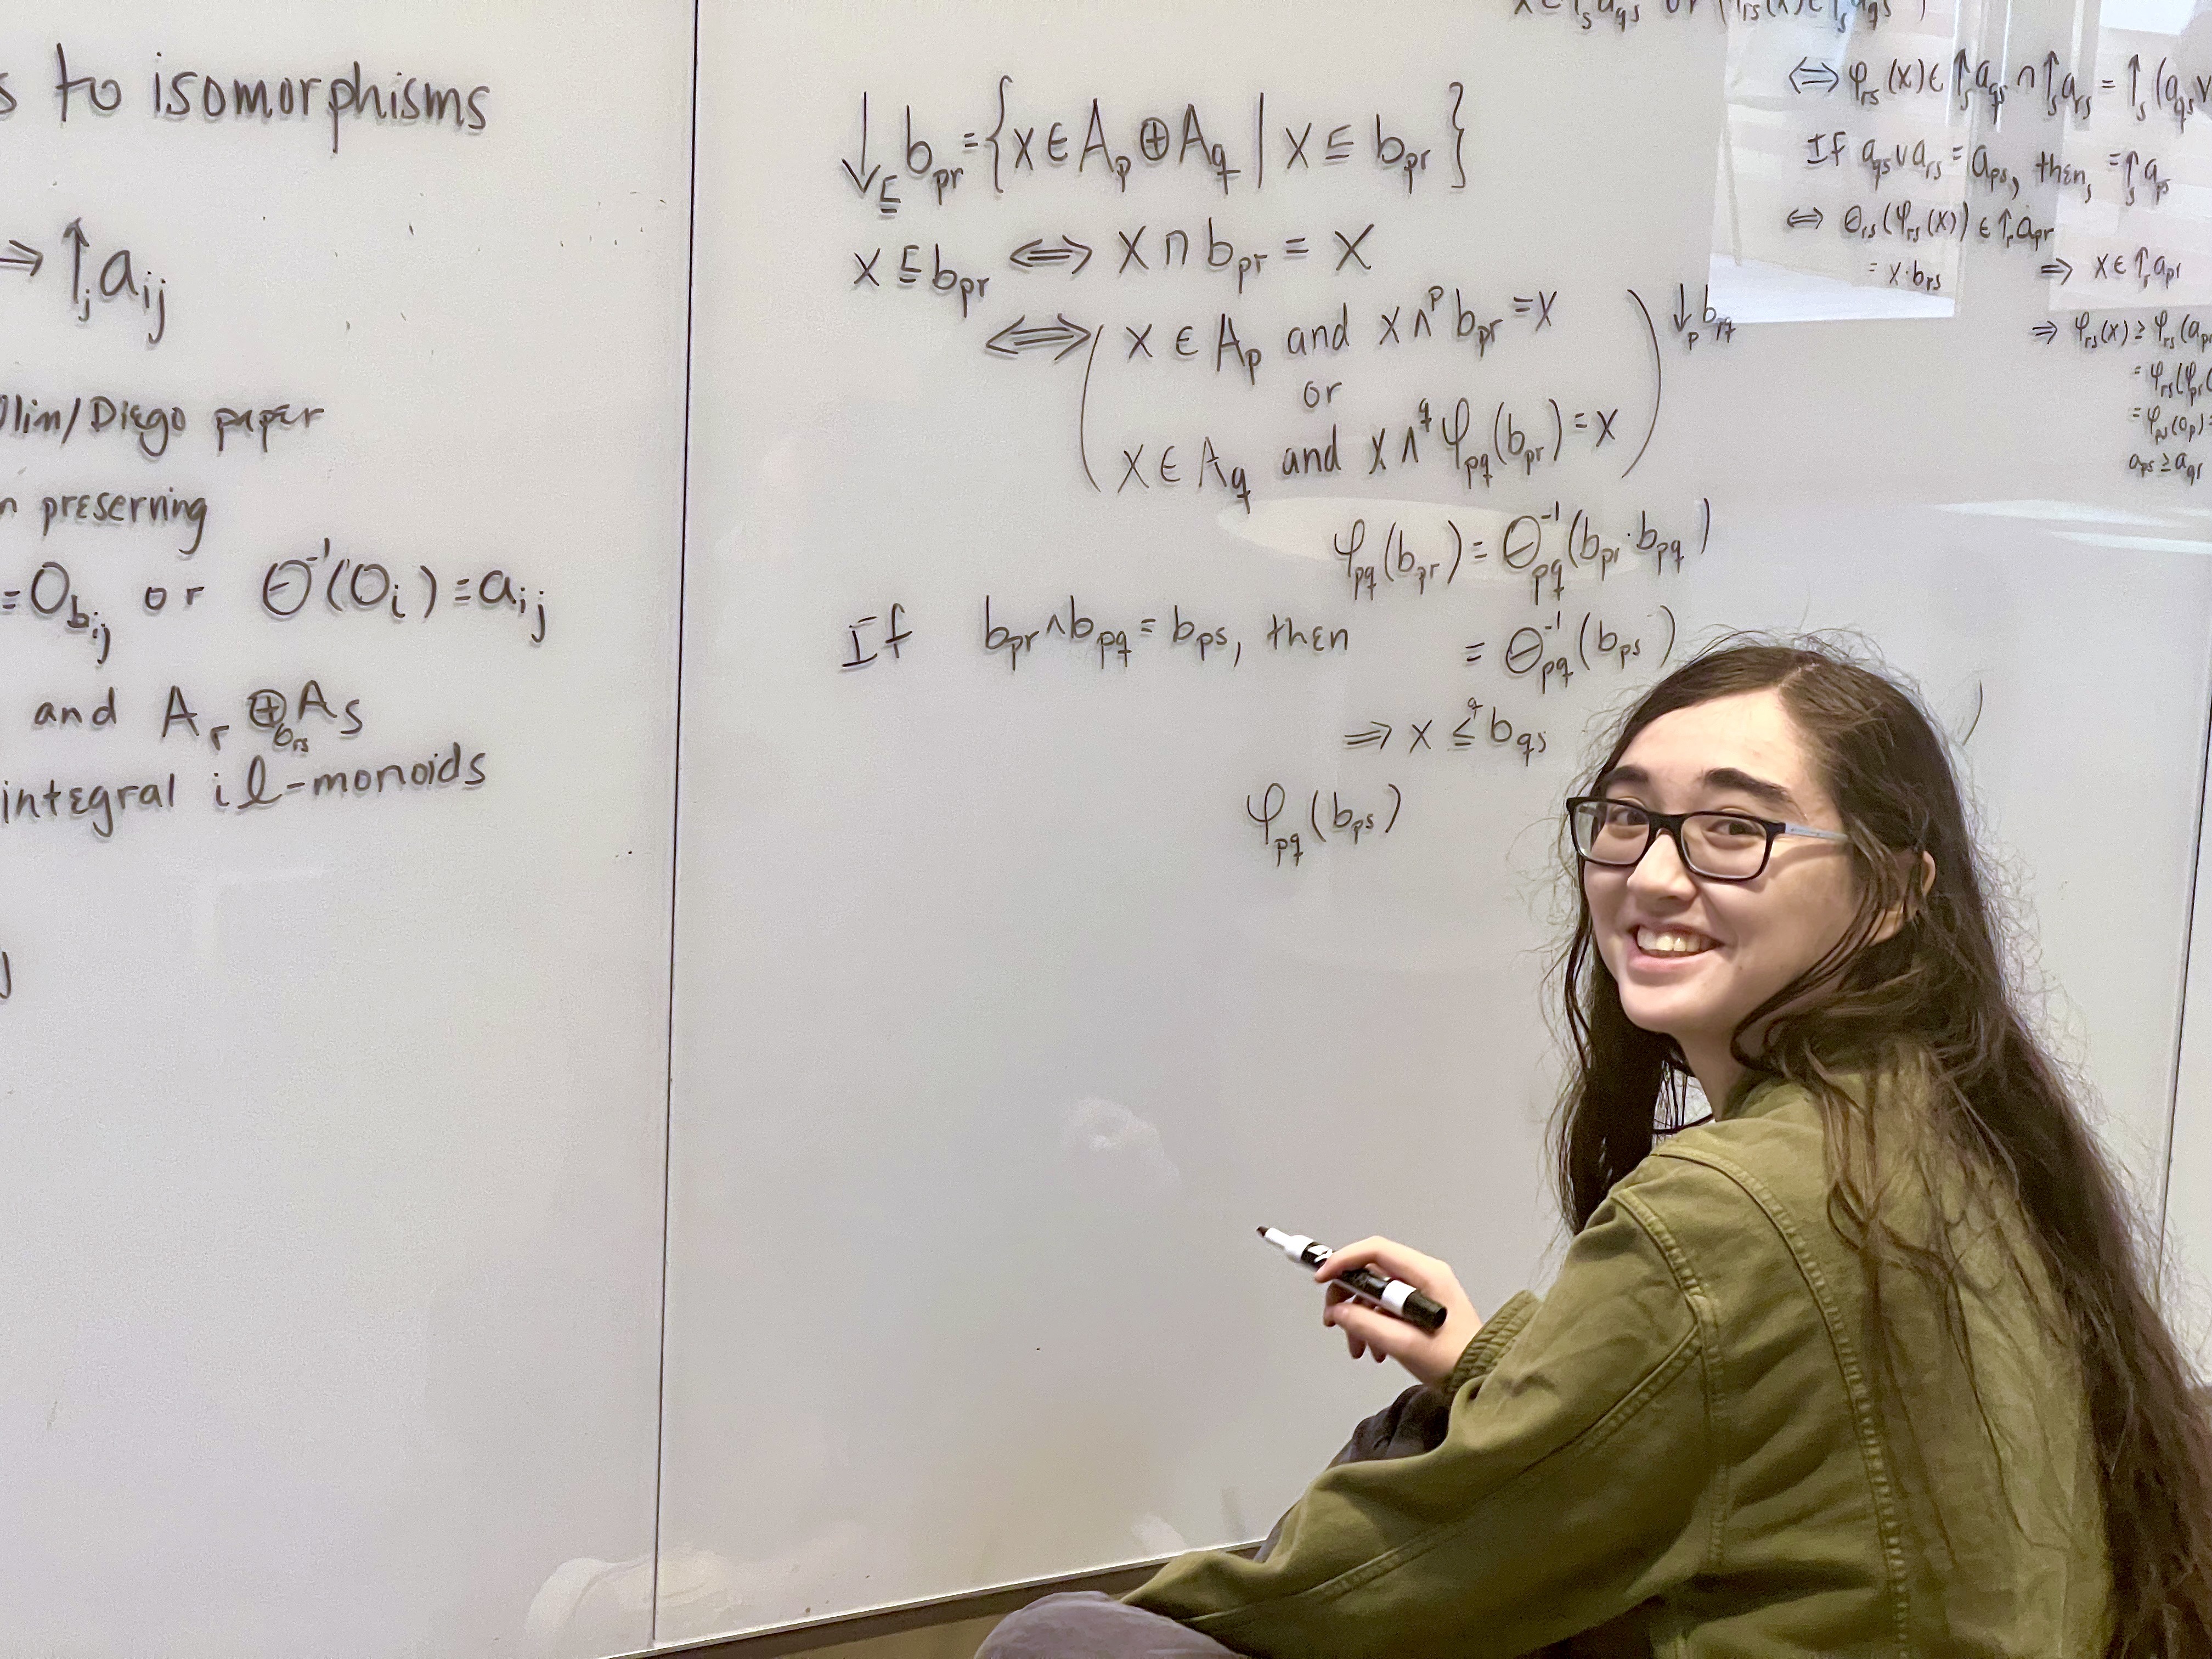 s to isomorphisms
⇒ ↑ⱼ a_ij
Olim/Diego paper
n preserving
= O_{b_ij} or Θ⁻¹(O_i) = a_ij
and A_r ⊕_{b_rs} A_s
integral iℓ-monoids
↓_⊑ b_pr = {x ∈ A_p ⊕ A_q | x ⊑ b_pr}
x ⊑ b_pr ⟺ x ⊓ b_pr = x
⟺ ( x ∈ A_p and x ∧^p b_pr = x ) ↓_p b_pq
or
x ∈ A_q and x ∧^q φ_pq(b_pr) = x
φ_pq(b_pr) = Θ⁻¹_pq(b_pr · b_pq)
If b_pr ∧ b_pq = b_ps, then = Θ⁻¹_pq(b_ps)
⇒ x ≤^q b_qs
φ_pq(b_ps)
⟺ φ_rs(x) ∈ ↑_s a_qs ∩ ↑_s a_rs = ↑_s (a_qs ∨
If a_qs ∨ a_rs = a_ps, then, = ↑_s a_ps
⟺ Θ_rs(φ_rs(x)) ∈ ↑_r a_pr
= x · b_ps ⇒ x ∈ ↑_r a_pr
⇒ φ_rs(x) ≥ φ_rs(a_pr
= φ_rs(φ_pr(
= φ_ps(0_p) =
a_ps ≥ a_qs